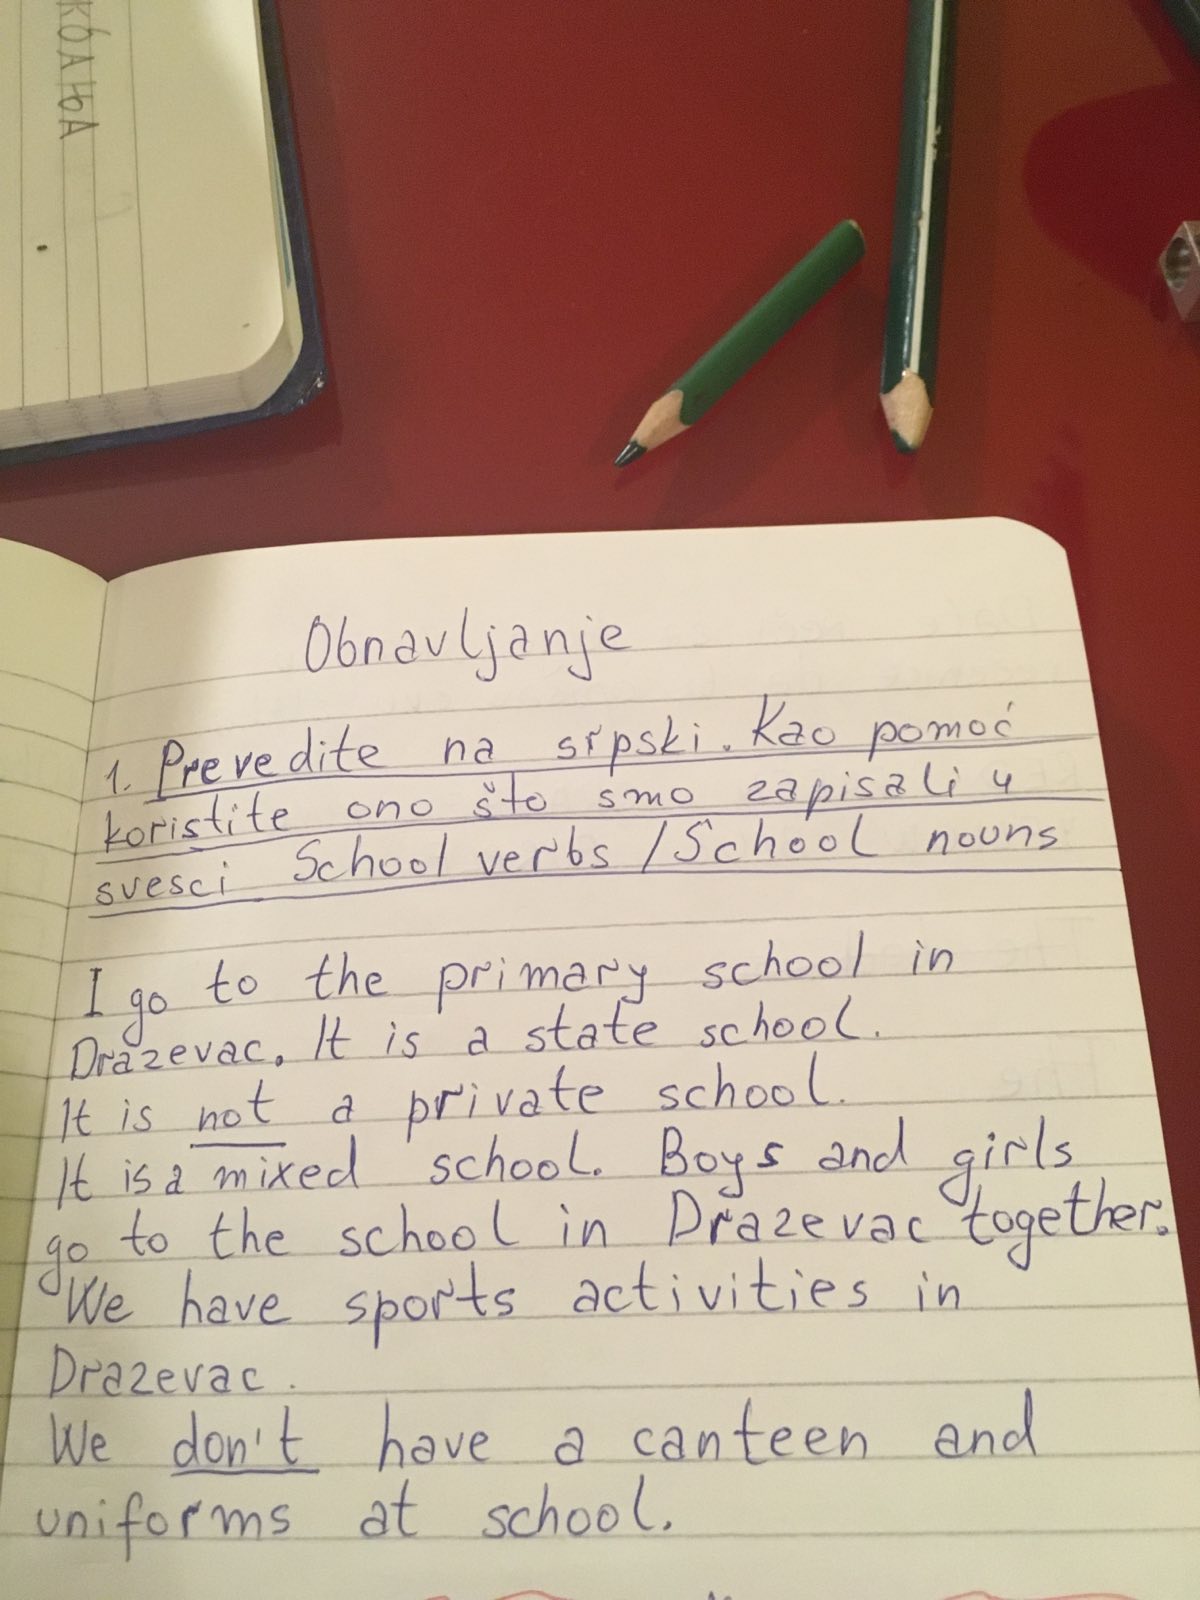 Obnavljanje
1. Prevedite na srpski. Kao pomoć
koristite ono što smo zapisali u
svesci School verbs / School nouns
I go to the primary school in
Drazevac. It is a state school.
It is not a private school.
It is a mixed school. Boys and girls
go to the school in Drazevac together.
We have sports activities in
Drazevac.
We don't have a canteen and
uniforms at school.